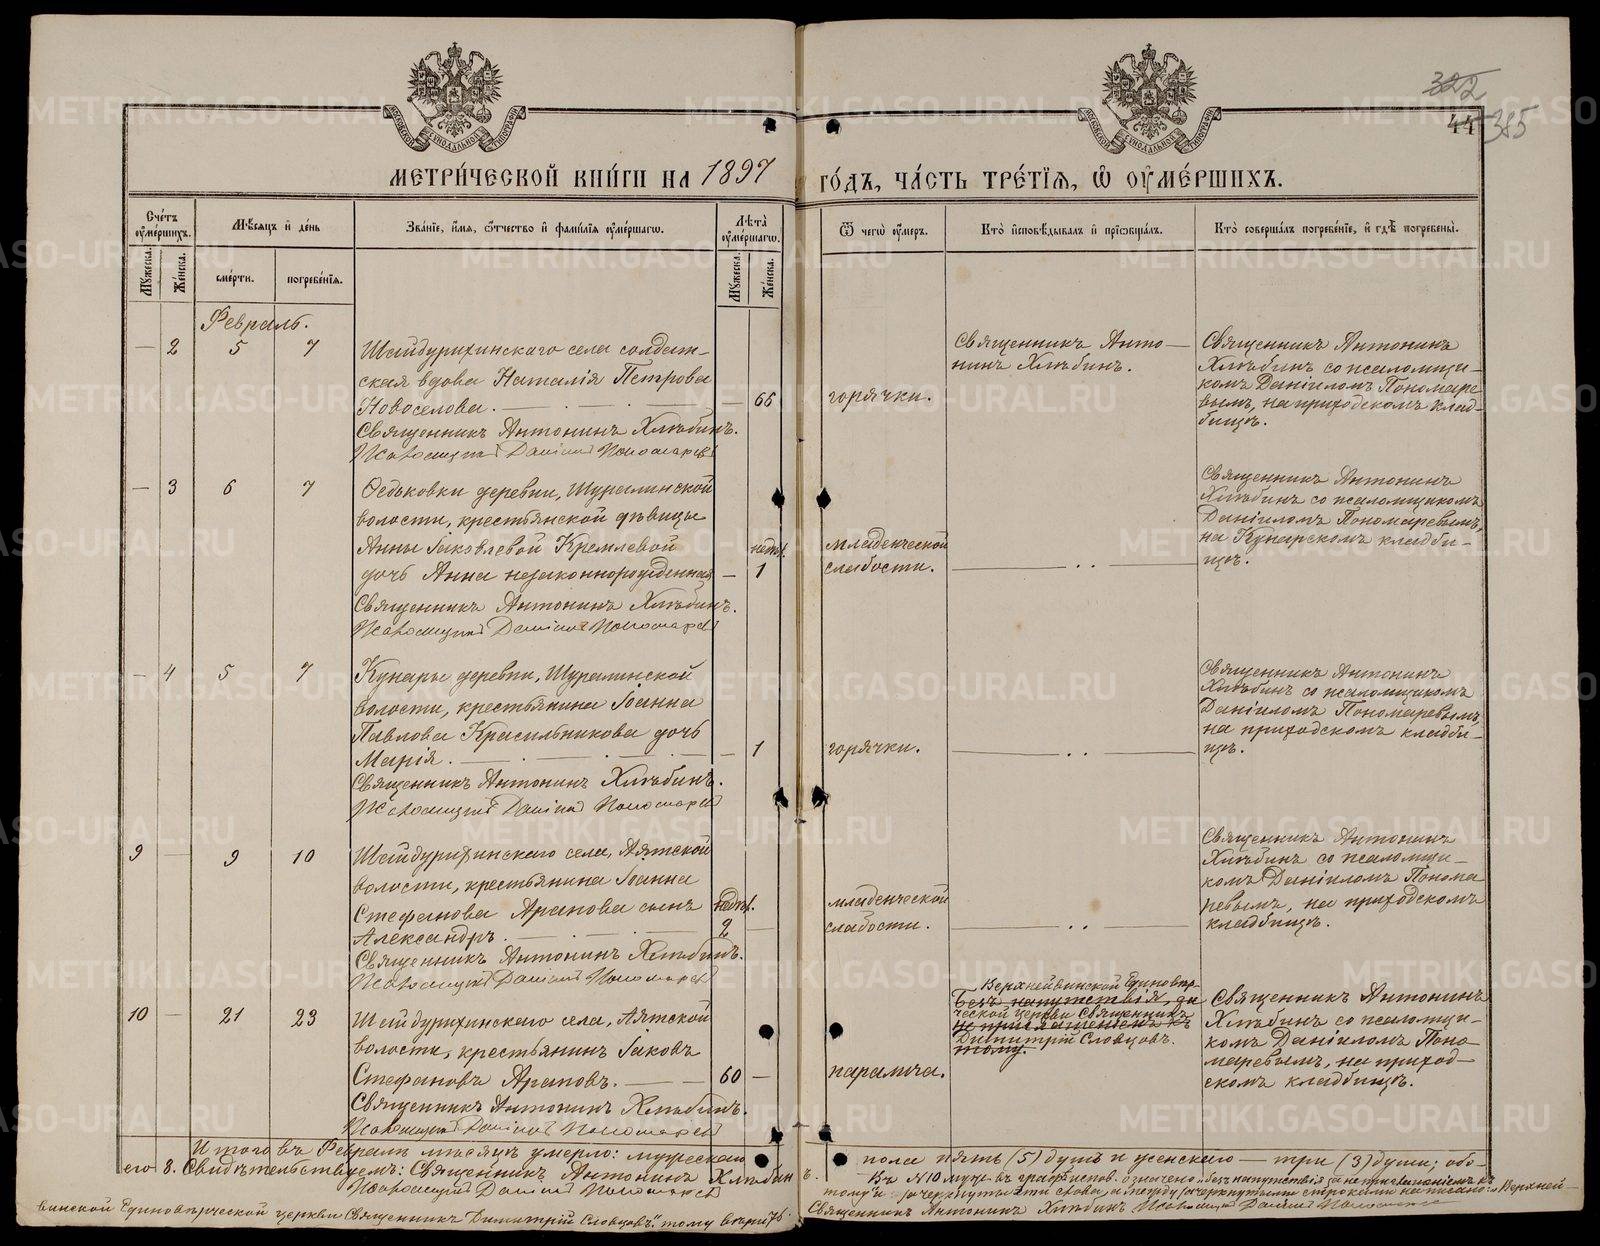 322
44 385
МЕТРИ́ЧЕСКОЙ КНИ́ГИ НА 1897 ГО́ДЪ, ЧА́СТЬ ТРЕ́ТІЯ, Ѿ ОУМЕ́РШИХЪ.
Сче́тъ оуме́ршихъ.
Мѣ́сяцъ и҆ де́нь
Зва́ніе, и҆́мя, ѻ҆́тчество и҆ фами́лія оуме́ршагѡ.
Лѣта̀ оуме́ршагѡ.
Ѿ чегѡ̀ оу҆́меръ.
Кто̀ и҆сповѣ́дывалъ и҆ прїѡбща́лъ.
Кто̀ соверша́лъ погребе́ніе, и҆ гдѣ̀ погребены̀.
Му́жеска. Же́нска.
сме́рти. погребе́нія.
Му́жеска. Же́нска.
Февраль.
— 2 5 7
Шайдурихинскаго села солдат-
ская вдова Наталія Петрова
Новоселова. — 65
Священникъ Антонинъ Хлѣбинъ.
Псаломщикъ Даніилъ Пономаревъ
горячки.
Священникъ Анто-
нинъ Хлѣбинъ.
Священникъ Антонинъ
Хлѣбинъ со псаломщи-
комъ Даніиломъ Пономаре
вымъ, на приходскомъ клад-
бищѣ.
— 3 6 7
Федьковки деревни, Шуралинской
волости, крестьянской дѣвицы
Анны Іаковлевой Кремлевой нед.
дочь Анна незаконнорожденная — 1
Священникъ Антонинъ Хлѣбинъ.
Псаломщикъ Даніилъ Пономаревъ
младенческой
слабости.
Священникъ Антонинъ
Хлѣбинъ со псаломщикомъ
Даніиломъ Пономаревымъ,
на Кунарскомъ кладби-
щѣ.
— 4 5 7
Кунары деревни, Шуралинской
волости, крестьянина Іоанна
Павлова Красильникова дочь
Марія. — 1
Священникъ Антонинъ Хлѣбинъ.
Псаломщикъ Даніилъ Пономаревъ
горячки.
Священникъ Антонинъ
Хлѣбинъ со псаломщикомъ
Даніиломъ Пономаревымъ,
на приходскомъ кладби-
щѣ.
9 — 9 10
Шайдурихинскаго села, Аятской
волости, крестьянина Іоанна
Стефанова Арапова сынъ нед.
Александръ. 2 —
Священникъ Антонинъ Хлѣбинъ.
Псаломщикъ Даніилъ Пономаревъ
младенческой
слабости.
Священникъ Антонинъ
Хлѣбинъ со псаломщи-
комъ Даніиломъ Понома
ревымъ, на приходскомъ
кладбищѣ.
10 — 21 23
Шайдурихинскаго села, Аятской
волости, крестьянинъ Іаковъ
Стефановъ Араповъ. 60 —
Священникъ Антонинъ Хлѣбинъ.
Псаломщикъ Даніилъ Пономаревъ
паралича.
Верхнейвинской Единовѣр-
Безъ напутствія, за
ческой церкви Священникъ
не приглашеніемъ къ
Димитрій Словцовъ.
тому.
Священникъ Антонинъ
Хлѣбинъ со псаломщи-
комъ Даніиломъ Поно-
маревымъ, на приход-
скомъ кладбищѣ.
Итого въ Февралѣ мѣсяцѣ умерло: мужескаго пола пять (5) душъ и женскаго — три (3) души; обо-
его 8. Свидѣтельствуемъ: Священникъ Антонинъ Хлѣбинъ.
Псаломщикъ Даніилъ Пономаревъ
Въ №10 муж. въ графѣ испов. означено „безъ напутствія за не приглашеніемъ къ
тому“ зачеркнуты эти слова, и между зачеркнутыми строками написано: „Верхней-
винской Единовѣрческой церкви Священникъ Димитрій Словцовъ.“ тому вѣрить.
Священникъ Антонинъ Хлѣбинъ Псаломщикъ Даніилъ Пономаревъ
METRIKI.GASO-URAL.RU